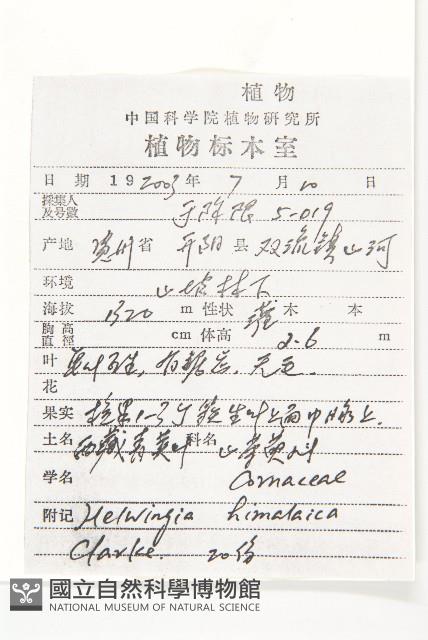 植物
中国科学院植物研究所
植物标本室
日期 19 2003年 7月 10日
採集人及号数 5-019
产地 贵州省 开阳县 双流镇山河
环境 山坡林下
海拔 1320 m 性状 灌木 本
胸高直徑 cm 体高 2.6 m
叶 单叶互生,有锯齿,无毛.
花
果实 核果1-3个簇生叶上面中脉上.
土名 西藏青荚叶 科名 山茱萸科
学名 Cornaceae
附记 Helwingia himalaica
Clarke. 20份
國立自然科學博物館
NATIONAL MUSEUM OF NATURAL SCIENCE